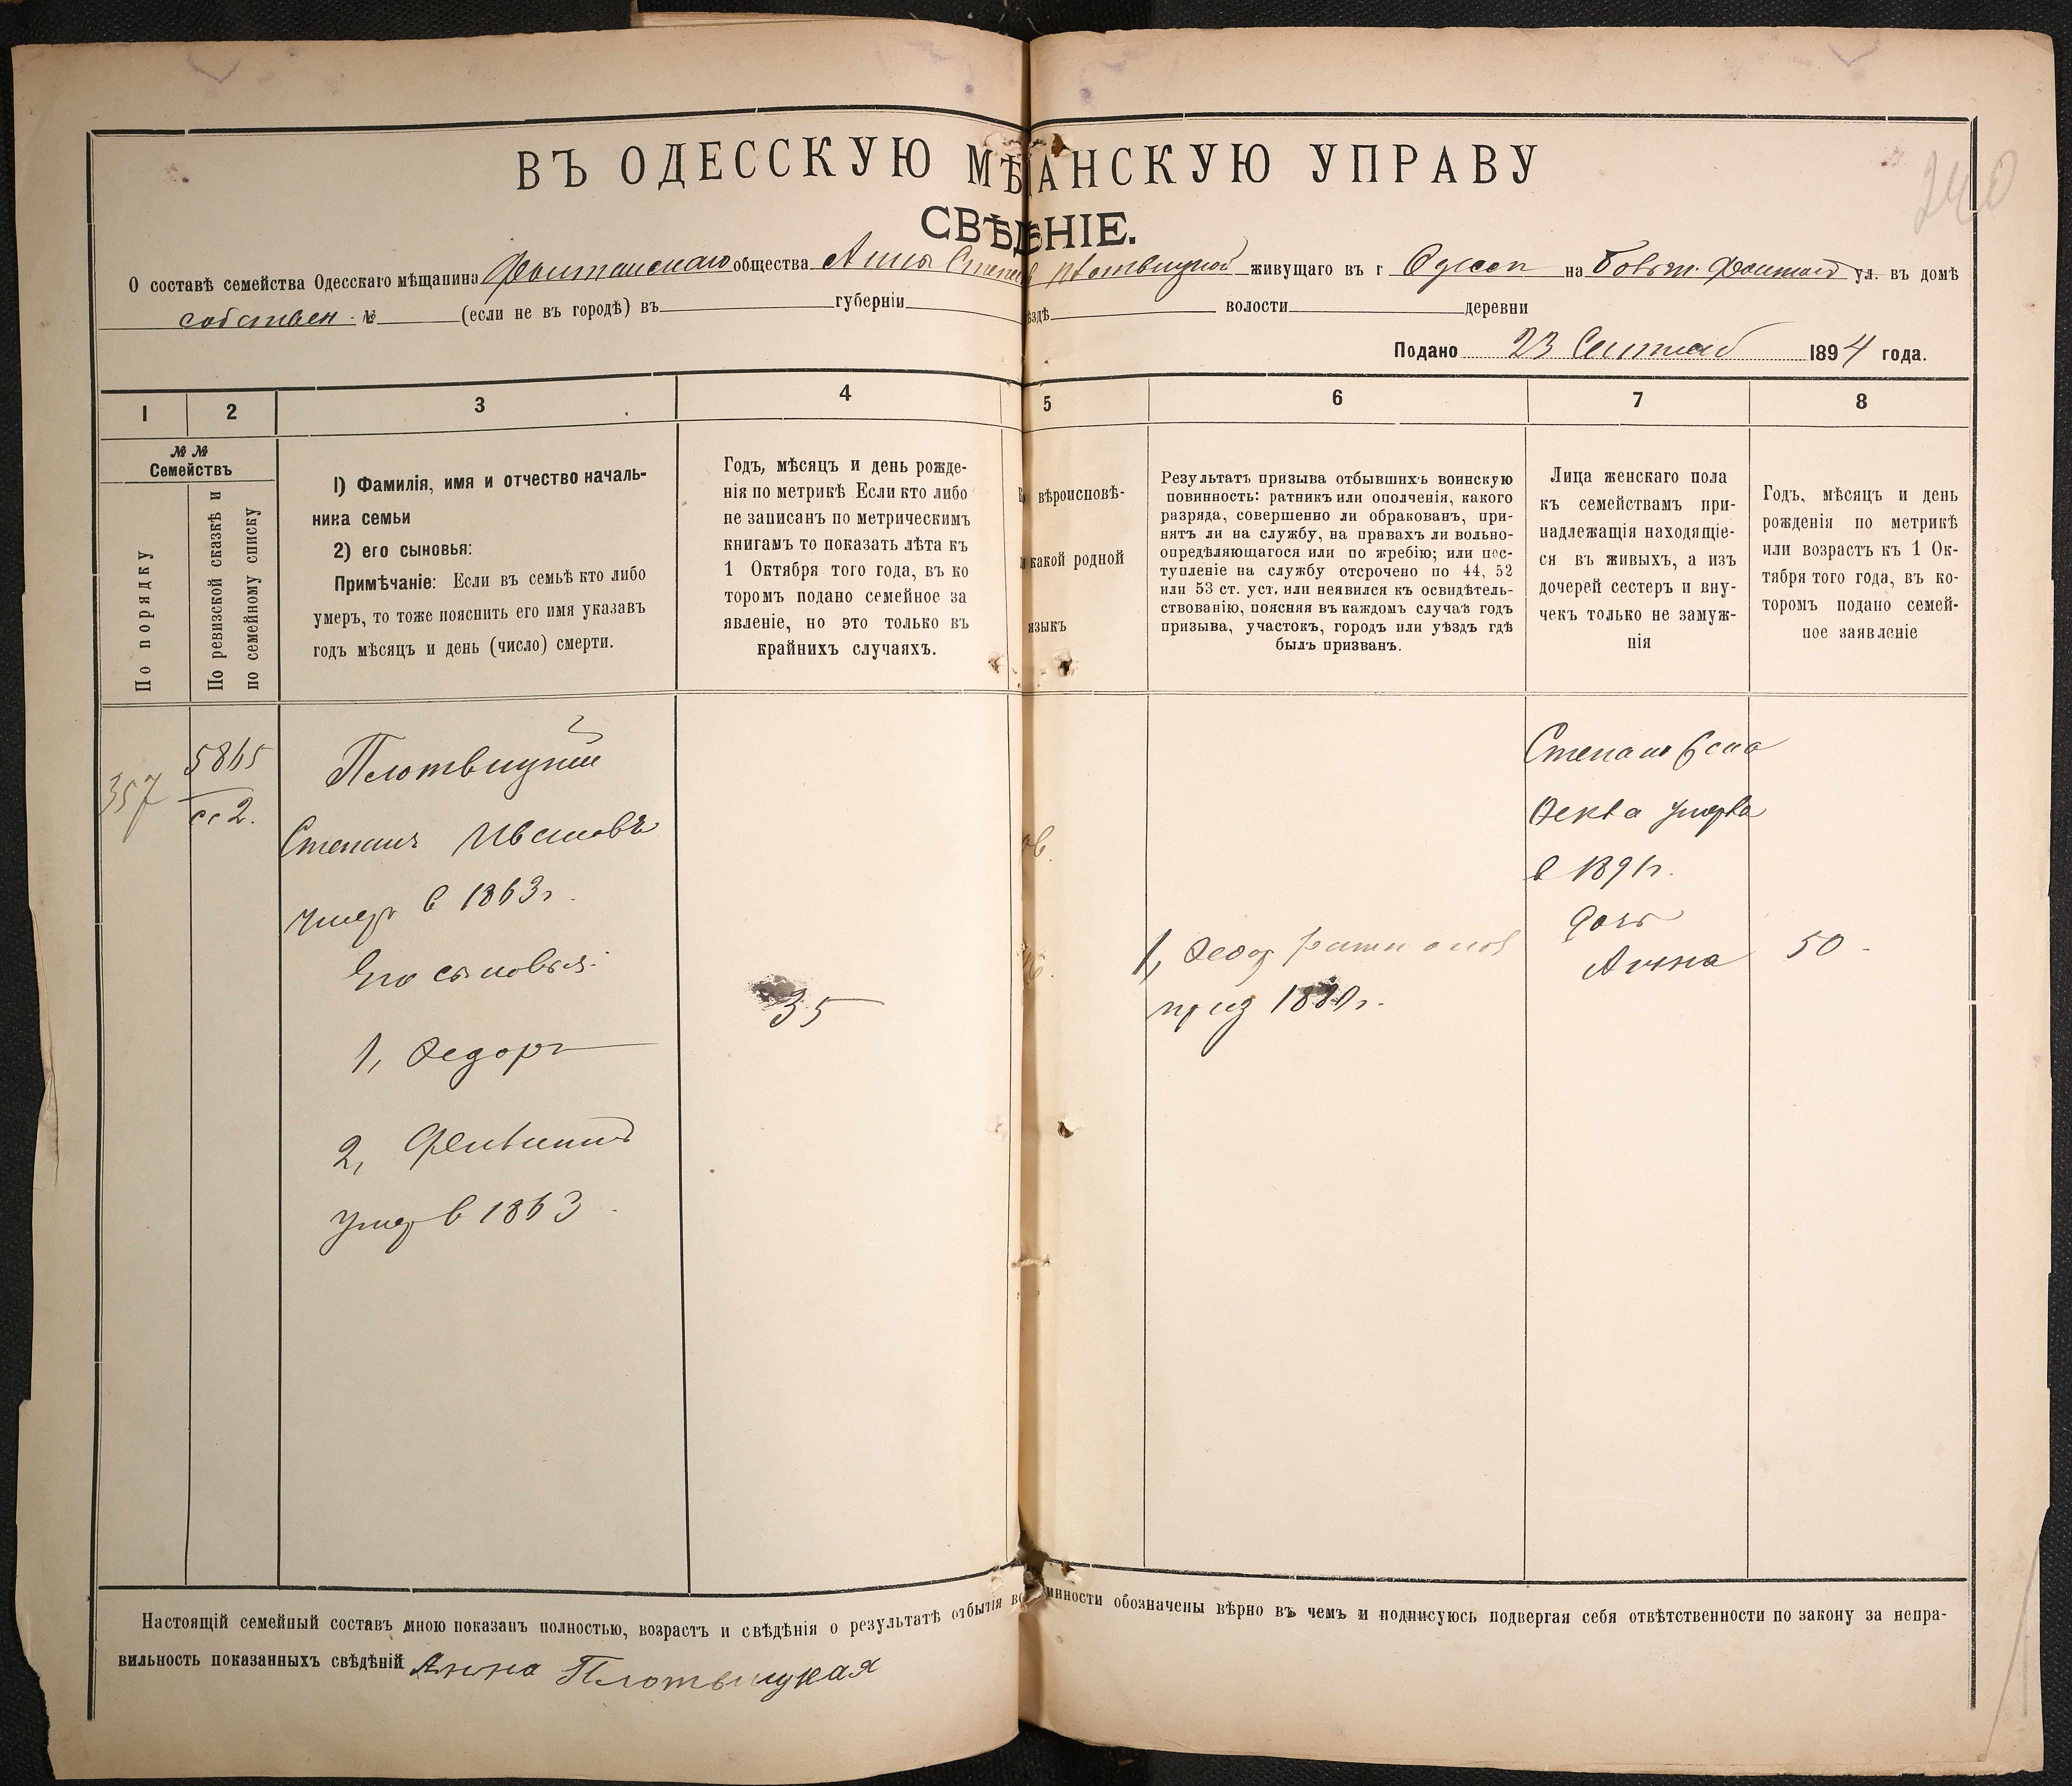 240
ВЪ ОДЕССКУЮ МѢ АНСКУЮ УПРАВУ
СВѢДѢНІЕ.
О составѣ семейства Одесскаго мѣщанина Фонтанскаго общества Анны Степанов Плотвицкой живущаго въ г Одессѣ на Больш. Фонтанѣ ул. въ домѣ
собствен. № (если не въ городѣ) въ губерніи ѣздѣ волости деревни
Подано 23 Сентяб 1894 года.
1 2 3 4 5 6 7 8
№ №
Семействъ
По порядку
По ревизской сказкѣ и
по семейному списку
1) Фамилія, имя и отчество началь-
ника семьи
2) его сыновья:
Примѣчаніе: Если въ семьѣ кто либо
умеръ, то тоже пояснить его имя указавъ
годъ мѣсяцъ и день (число) смерти.
Годъ, мѣсяцъ и день рожде-
нія по метрикѣ Если кто либо
не записанъ по метрическимъ
книгамъ то показать лѣта къ
1 Октября того года, въ ко
торомъ подано семейное за
явленіе, но это только въ
крайнихъ случаяхъ.
вѣроисповѣ-
какой родной
языкъ
Результатъ призыва отбывшихъ воинскую
повинность: ратникъ или ополченія, какого
разряда, совершенно ли обракованъ, при-
нятъ ли на службу, на правахъ ли вольно-
опредѣляющагося или по жребію; или пос-
тупленіе на службу отсрочено по 44, 52
или 53 ст. уст. или неявился къ освидѣтель-
ствованію, поясняя въ каждомъ случаѣ годъ
призыва, участокъ, городъ или уѣздъ гдѣ
былъ призванъ.
Лица женскаго пола
къ семействамъ при-
надлежащія находящіе-
ся въ живыхъ, а изъ
дочерей сестеръ и вну-
чекъ только не замуж-
нія
Годъ, мѣсяцъ и день
рожденія по метрикѣ
или возрастъ къ 1 Ок-
тября того года, въ ко-
торомъ подано семей-
ное заявленіе
357
5865
сс 2.
Плотвицкій
Степанъ Ивановъ
умеръ в 1863г.
Его сыновья:
1, Федоръ
2,
умер в 1863
35
1, Федор
приз 1880г.
Степанов
Фекла умерла
в 1891г.
дочь
Анна
50
Настоящій семейный составъ мною показанъ полностью, возрастъ и свѣдѣнія о результатѣ отбытія во инности обозначены вѣрно въ чемъ и подписуюсь подвергая себя отвѣтственности по закону за непра-
вильность показанныхъ свѣдѣній Анна Плотвицкая